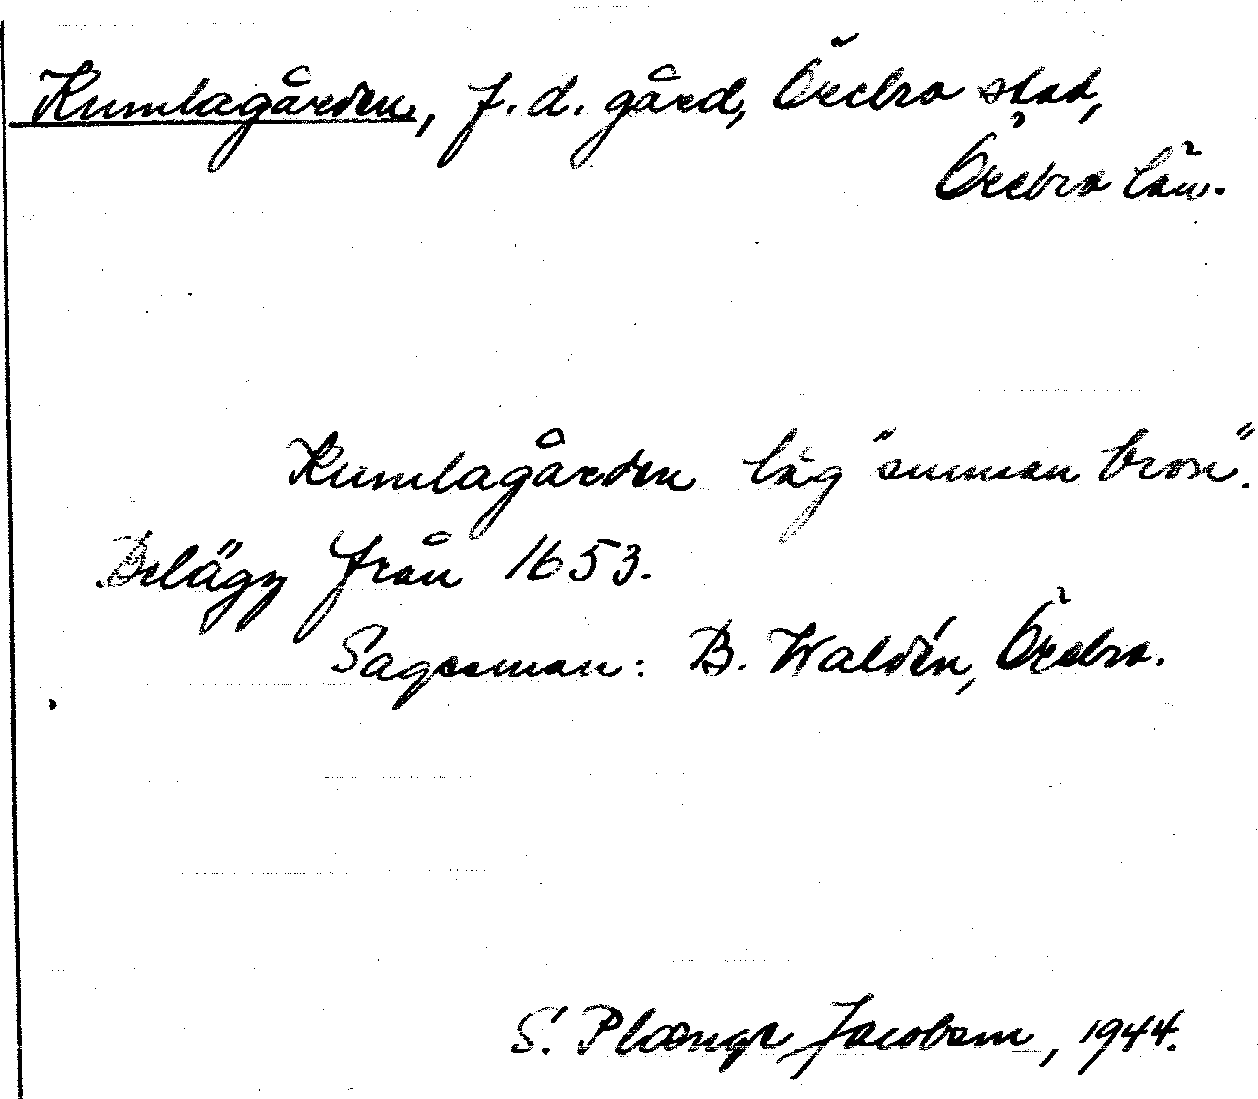 Kumlagården, f.d. gård, Örebro stad,
Örebro län.
Kumlagården låg "sunnan bron".
Belägg från 1653.
Sagesman: B. Waldén, Örebro.
S. Plænge Jacobson, 1944.